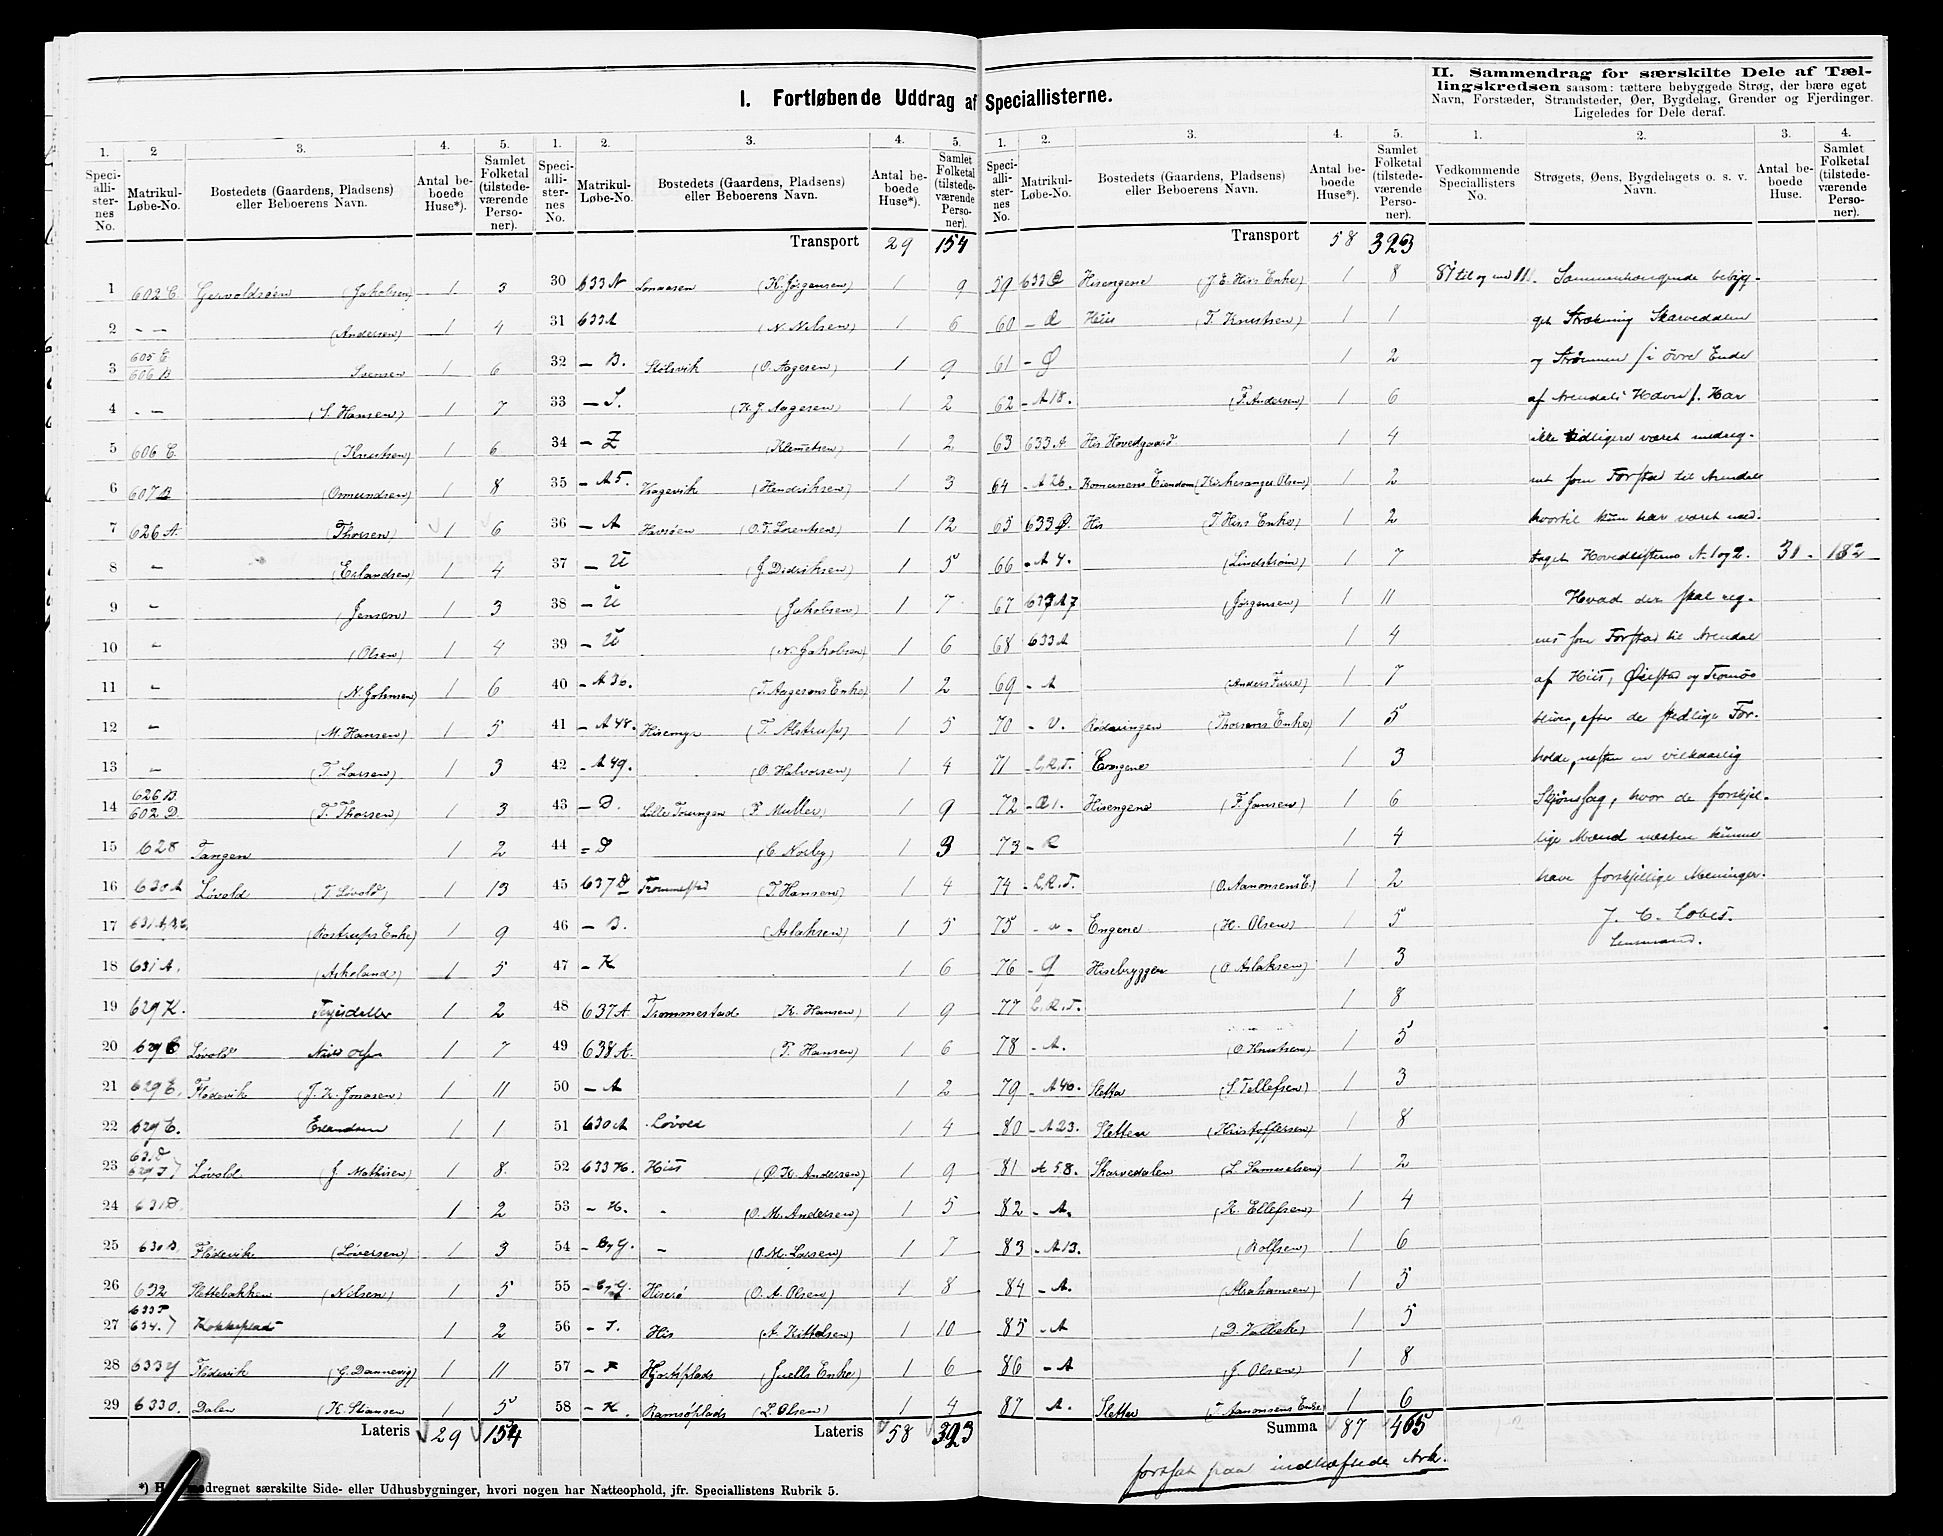 I. Fortløbende Uddrag af Speciallisterne.
II. Sammendrag for særskilte Dele af Tæl-
lingskredsen saasom: tættere bebyggede Strøg, der bære eget
Navn, Forstæder, Strandsteder, Øer, Bygdelag, Grender og Fjerdinger.
Ligeledes for Dele deraf.
1. 2 3. 4. 5. 1. 2. 3. 4. 5. 1. 2. 3. 4. 5. 1. 2. 3. 4.
Speci-alli-ster-nes No. Matrikul-Løbe-No. Bostedets (Gaardens, Pladsens) eller Beboerens Navn. Antal be-boede Huse*). Samlet Folketal (tilstede-værende Perso-ner).
Speci-alli-ster-nes No. Matrikul-Løbe-No. Bostedets (Gaardens, Pladsens) eller Beboerens Navn. Antal be-boede Huse*). Samlet Folketal (tilstede-værende Perso-ner).
Speci-alli-ster-nes No. Matrikul-Løbe-No. Bostedets (Gaardens, Pladsens) eller Beboerens Navn. Antal be-boede Huse*). Samlet Folketal (tilstede-værende Perso-ner).
Vedkommende Speciallisters No. Strøgets, Øens, Bygdelagets o. s. v. Navn. Antal be-boede Huse. Samlet Folketal (tilstede-værende Perso-ner).
1 602 C. Gervoldsøen (Jakobsen) 1 3
2 - - (Andersen) 1 4
3 605 C 606 B Svensen 1 6
4 - - (S. Hansen) 1 7
5 606 C. (Knutsen) 1 6
6 607 B (Osmundsen) 1 8
7 626 A. (Thorsen) 1 6
8 - (Erlandsen) 1 4
9 - (Jensen) 1 3
10 - (Olsen) 1 4
11 - (N. Johnsen) 1 6
12 - (M. Hansen) 1 5
13 - (T. Larsen) 1 3
14 626 B. 602 D. (T. Thorsen) 1 3
15 628 Tangen 1 2
16 630 A Løvold (T. Løvold) 1 13
17 (Rostrups Enke) 1 9
18 631 A. (Askeland) 1 5
19 629 K. 1 2
20 Løvold Nils 1 7
21 629 E. Flødevik (J. K. Jonasen) 1 11
22 629 C. Erlandsen 1 1
23 Løvold J. Mathisen) 1 8
24 631 D. 1 2
25 630 B. Flødevik (Løversen) 1 3
26 632 Slettebakken (Nilsen) 1 5
27 633 634.) Kokkeplads 1 2
28 633 Y Flødevik (G. Dannevig) 1 11
29 6330. Dalen (K. Stiansen 1 5
Lateris 29 154
Transport 29 154
30 633 N Lonaasen (K. Jørgensen) 1 9
31 633 A (N. Nilsen) 1 6
32 - B. Stølsvik (O. Aagesen) 1 9
33 - S. (K. J. Aagesen) 1 2
34 - Z (Klemetsen) 1 2
35 - A 5. Kragevik (Hendriksen) 1 3
36 - A Havsøen (O. T. Lorentsen) 1 12
37 - U (J. Didriksen) 1 5
38 - U (Jakobsen) 1 7
39 - U (N. Jakobsen) 1 6
40 - A 30. (T. Aagesens Enke) 1 2
41 - A 48. Hisemyr (T. Alstrup) 1 5
42 - A 49. (O. Halvorsen) 1 4
43 - D. Lille Torungen (F. Muller) 1 9
44 = D (C. Norby) 1 3
45 637 D Trommestad (T. Hansen) 1 4
46 - B. (Aslaksen) 1 5
47 - K 1 6
48 637 A Trommestad (K. Hansen) 1 9
49 638 A. (T. Hansen) 1 6
50 - A 1 2
51 630 A Løvold 1 4
52 633 H. Hiis (O. K. Andersen) 1 9
53 - H. - (O. M. Andersen) 1 5
54 - G. - (O. M. Larsen) 1 7
55 - G. Hiserø (O. A. Olsen) 1 8
56 - I. His (A. Kittelsen) 1 10
57 - F (Juells Enke) 1 6
58 - K. Ramsøplads (L. Olsen) 1 4
Lateris 58 323
Transport 58 323
59 633 Hisengene (J. E. Hiis Enke) 1 8
60 - Q Hiis (T. Knutsen) 1 1
61 - Ø 1 2
62 - A 18. (F. Andersen) 1 6
63 633 A. His Hovedgaard 1 4
64 - A 26. Komunens Eiendom (Kirkesanger Olsen) 1 2
65 633 Ø. His (T. Hiis Enke) 1 2
66 - A 4. (Lindstrøm) 1 7
67 A 7 (Jørgensen) 1 11
68 633 A 1 4
69 - A (Anders Furre) 1 7
70 - V. Rødningen (Thorsens Enke) 1 5
71 - C, R, T. Engene 1 3
72 - Q 1. Hisengene (F. Jansen) 1 6
73 - R 1 4
74 - C, R, T. (O. Aanonsens E.) 1 2
75 - " - Engene (H. Olsen) 1 5
76 - Q Hisebryggen (O Aslaksen) 1 3
77 C, R, T. 1 8
78 - A. (O Knutsen) 1 5
79 - A 40. Sletta (S. Tellefsen) 1 3
80 - A 23. Sletten (Kristoffersen) 1 8
81 A 58. Skarvedalen (L. Samuelsen) 1 2
82 - A. (K. Ellefsen) 1 4
83 - A 13. (Rolfsen) 1 6
84 - A. (Abrahamsen) 1 5
85 - A (D. Valbek) 1 5
86 - A (J. Olsen) 1 8
87 A. Sletta (T. Aanonsens Enke) 1 6
Summa 87 465
fortsat paa indhæftede Ark.
81 til og med 111. Sammenhængende bebyg-
get Strækning Skarvedalen
og Strømmen /: i øvre Ende
af Arendals Havn /. Har
ikke tidligere været medreg-
net som Forstad til Arendal
hvortil kun har været med-
taget Hovedlisterne N. 1 og 2. 31 - 182
Hvad der skal reg-
nes som Forstad til Arendal
af Hiis, Øiestad og Tromø
bliver, efter de stedlige For-
holde, næsten en vilkaarlig
Skjønssag, hvor de forskjel-
lige Mænd næsten kunne
have forskjellige Meninger.
J. C.
Lensmand.
*) H medregnet særskilte Side- eller Udhusbygninger, hvori nogen har Natteophold, jfr. Speciallistens Rubrik 5.